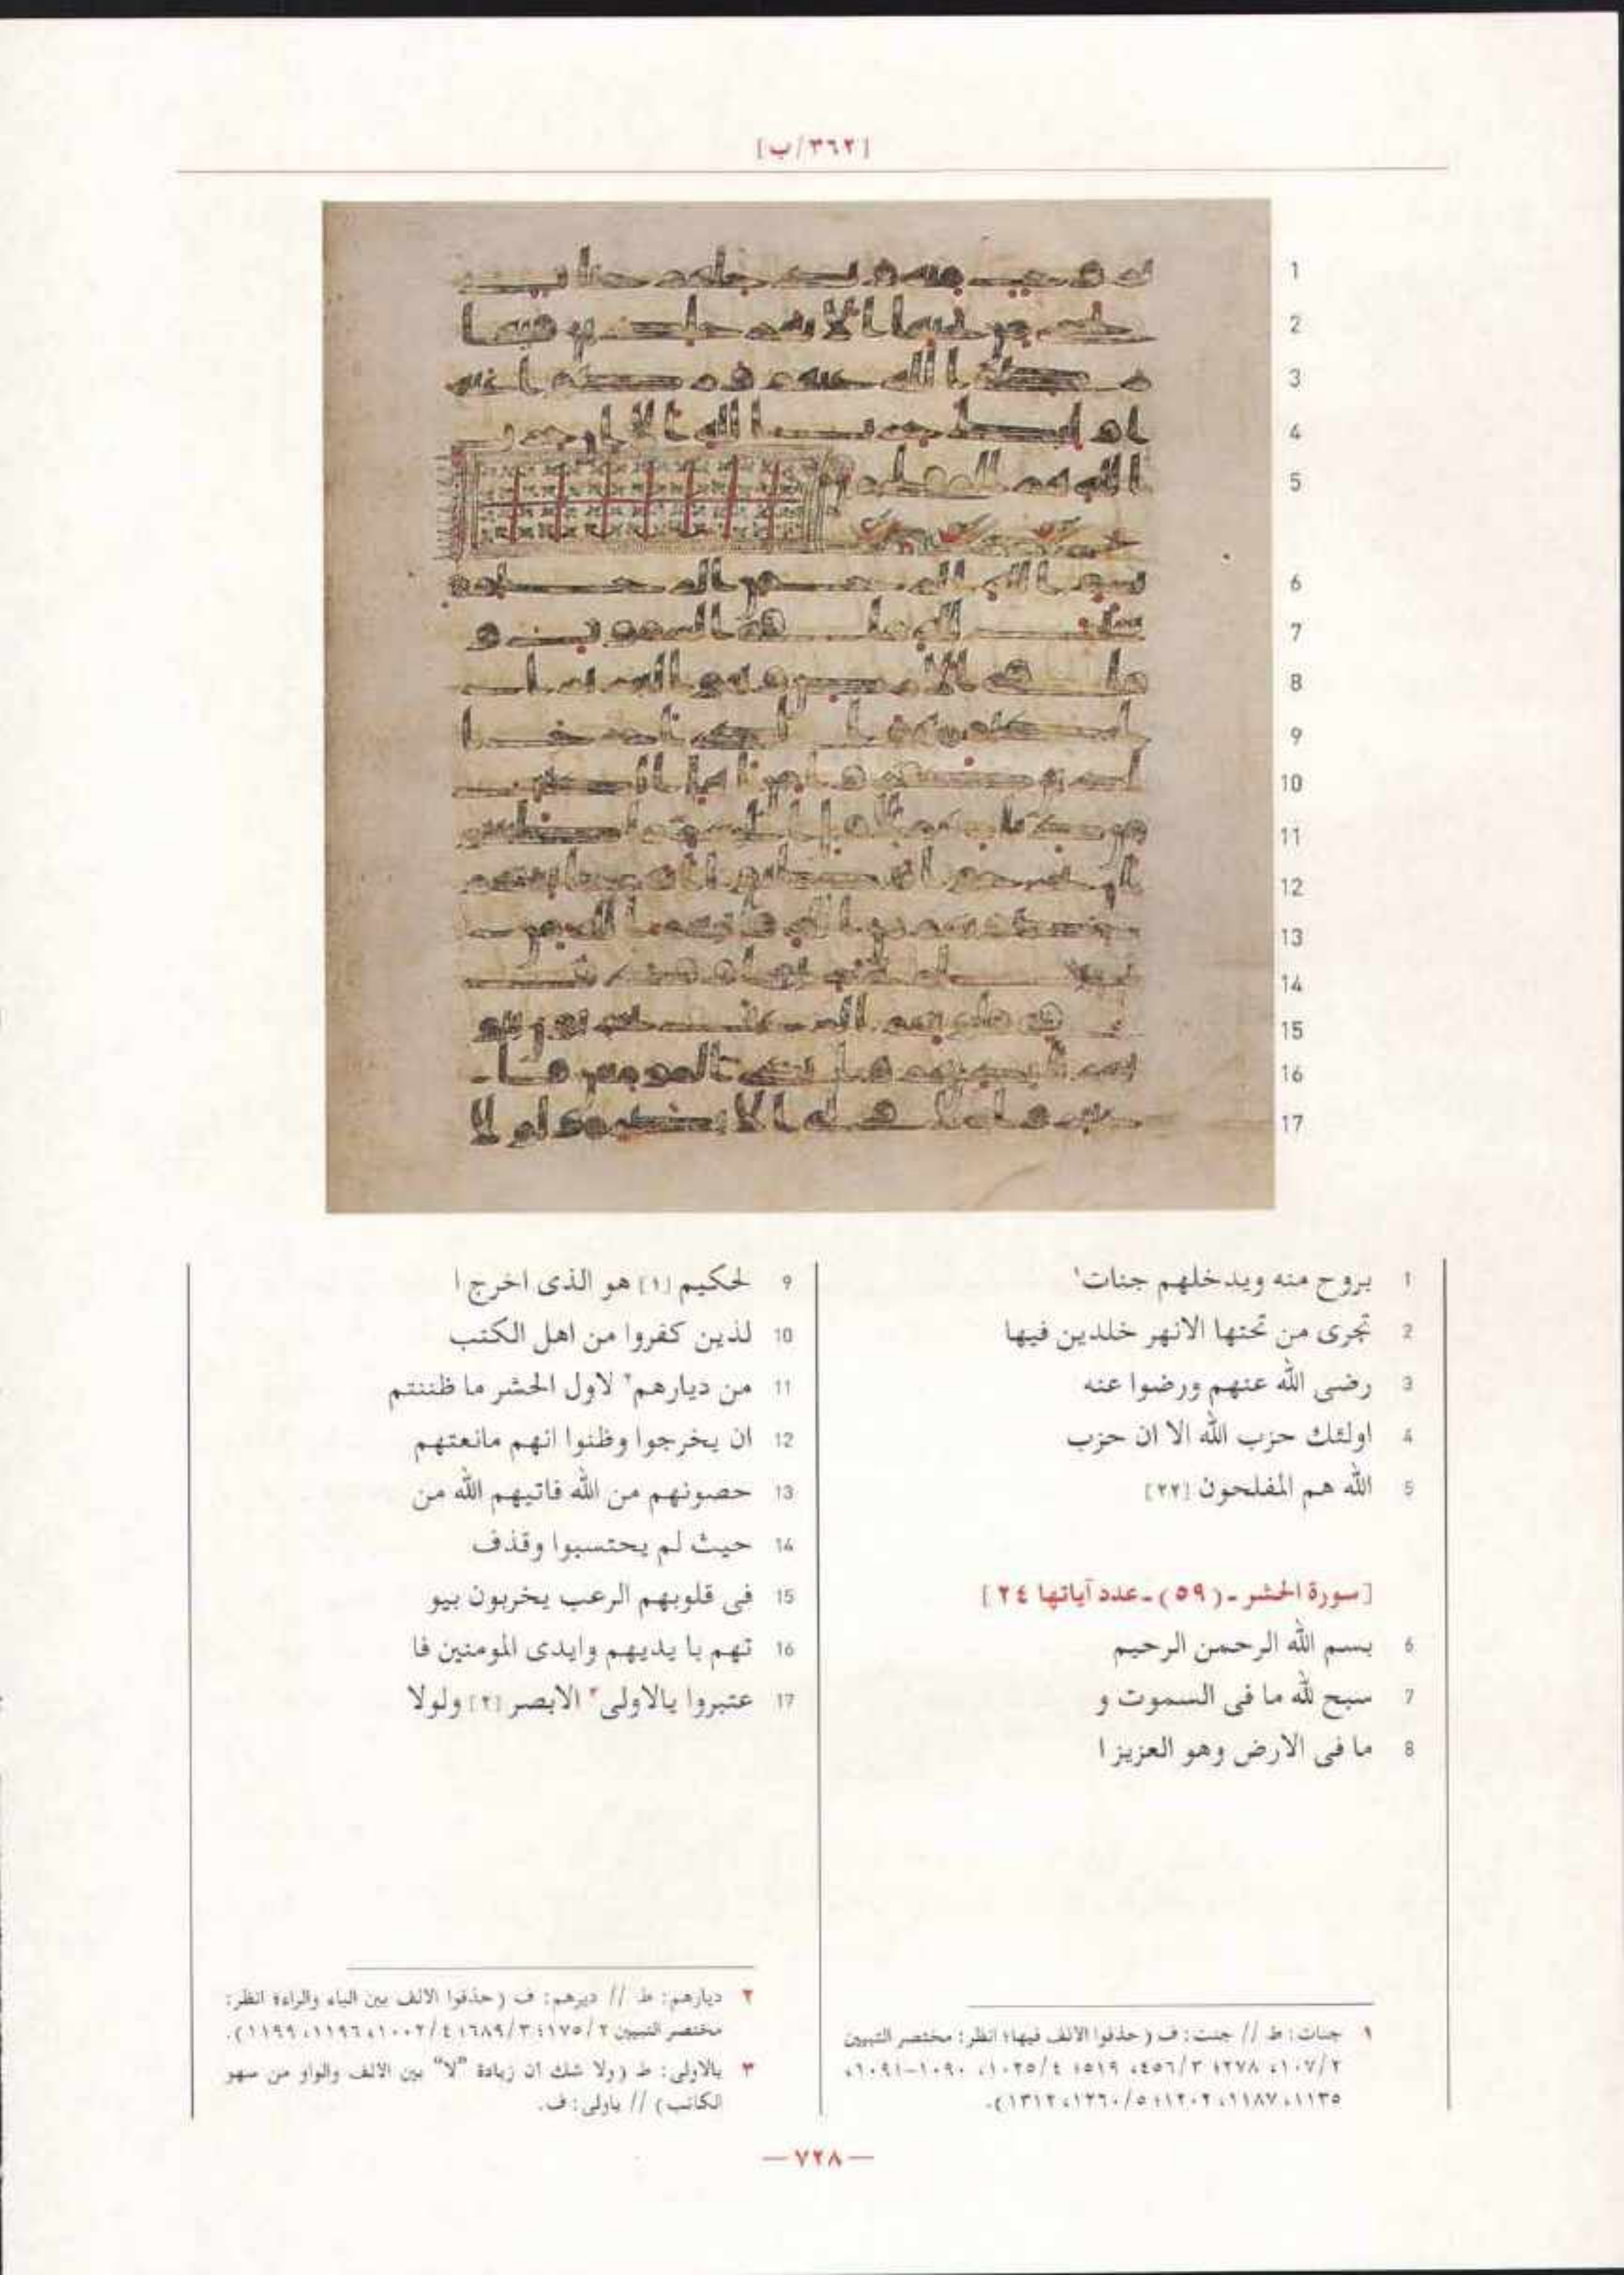 [٣٦٢/ب]
1 بروح منه ويدخلهم جنات١
2 تجرى من تحتها الانهر خلدين فيها
3 رضى الله عنهم ورضوا عنه
4 اولئك حزب الله الا ان حزب
5 الله هم المفلحون [٢٢]
[سورة الحشر ـ (٥٩) ـ عدد آياتها ٢٤]
6 بسم الله الرحمن الرحيم
7 سبح لله ما فى السموت و
8 ما فى الارض وهو العزيز ا
9 لحكيم [١] هو الذى اخرج ا
10 لذين كفروا من اهل الكتب
11 من ديارهم٢ لاول الحشر ما ظننتم
12 ان يخرجوا وظنوا انهم مانعتهم
13 حصونهم من الله فاتيهم الله من
14 حيث لم يحتسبوا وقذف
15 فى قلوبهم الرعب يخربون بيو
16 تهم با يديهم وايدى المومنين فا
17 عتبروا يالاولى٣ الابصر [٢] ولولا
١ جنات: ط // جنت: ف (حذفوا الالف فيها؛ انظر: مختصر التبيين
٢/١٠٧، ٢٧٨؛ ٣/٤٥٦، ٥١٩؛ ٤/١٠٢٥، ١٠٩٠-١٠٩١،
١١٣٥، ١١٨٧، ١٢٠٢؛ ٥/١٢٦٠، ١٣١٢).
٢ ديارهم: ط // ديرهم: ف (حذفوا الالف بين الياء والراء؛ انظر:
مختصر التبيين ٢/١٧٥؛ ٣/٦٨٩؛ ٤/١٠٠٢، ١١٩٦، ١١٩٩).
٣ يالاولى: ط (ولا شك ان زيادة "لا" بين الالف والواو من سهو
الكاتب) // ياولى: ف.
— ٧٢٨ —